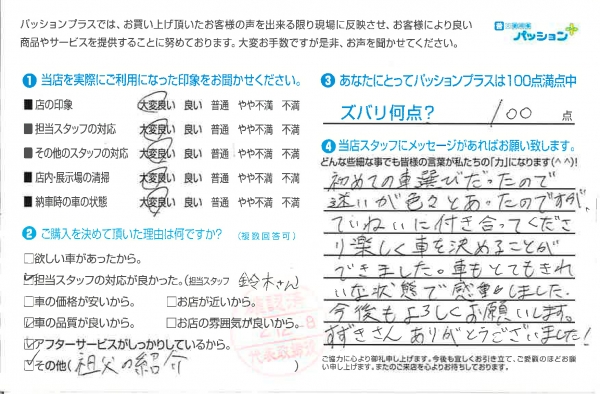 パッションプラスでは、お買い上げ頂いたお客様の声を出来る限り現場に反映させ、お客様により良い
商品やサービスを提供することに努めております。大変お手数ですが是非、お声を聞かせてください。
パッション
❶ 当店を実際にご利用になった印象をお聞かせください。
■ 店の印象 大変良い 良い 普通 やや不満 不満
■ 担当スタッフの対応 大変良い 良い 普通 やや不満 不満
■ その他のスタッフの対応 大変良い 良い 普通 やや不満 不満
■ 店内・展示場の清掃 大変良い 良い 普通 やや不満 不満
■ 納車時の車の状態 大変良い 良い 普通 やや不満 不満
❷ ご購入を決めて頂いた理由は何ですか? (複数回答可)
□欲しい車があったから。
☑担当スタッフの対応が良かった。(担当スタッフ 鈴木さん
□車の価格が安いから。 □お店が近いから。
☑車の品質が良いから。 □お店の雰囲気が良いから。
☑アフターサービスがしっかりしているから。
☑その他(祖父の紹介 )
❸ あなたにとってパッションプラスは100点満点中
ズバリ何点? 100 点
❹ 当店スタッフにメッセージがあればお願い致します。
どんな些細な事でも皆様の言葉が私たちの「力」になります(^^)!
初めての車選びだったので
迷いが色々とあったのですが、
ていねいに付き合ってくださ
り楽しく車を決めることが
できました。車もとてもきれ
いな状態で感動しました。
今後もよろしくお願いします。
すずきさんありがとうございました!
ご協力に心より御礼申し上げます。今後も宜しくお引き立て、ご愛顧のほどお願
い申し上げます。またのご来店を心よりお待ちしております。